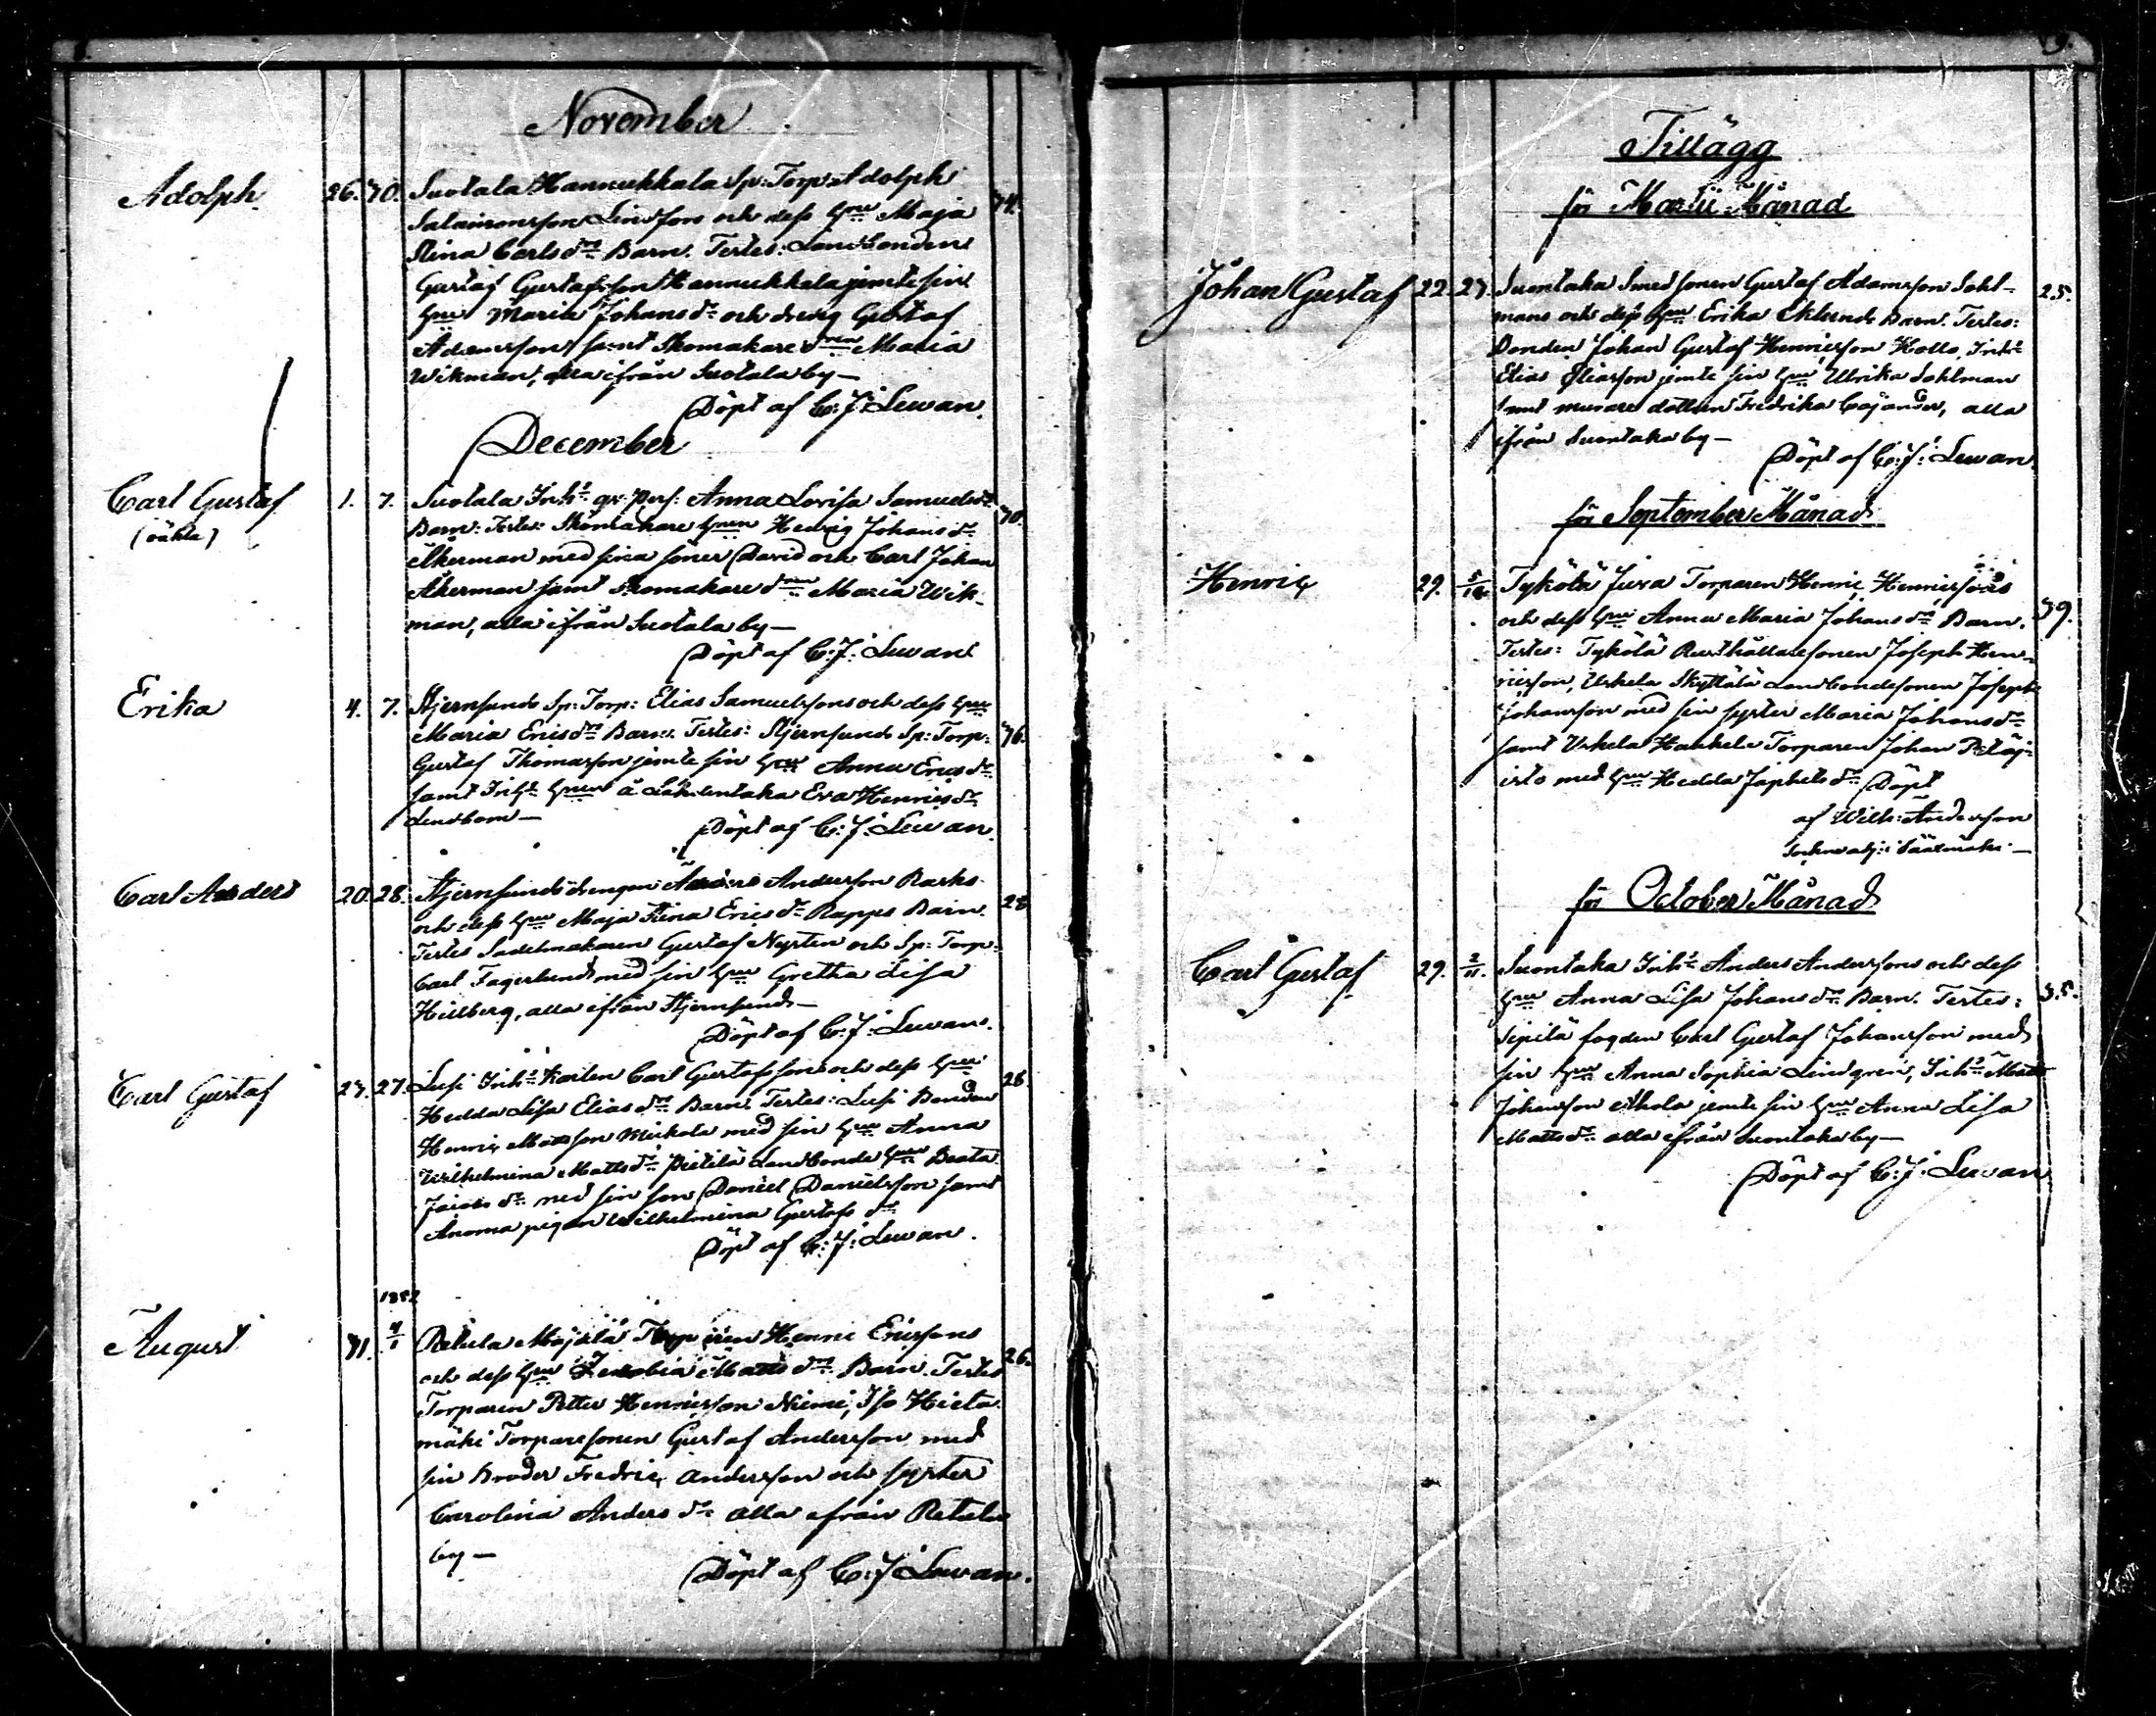 November
Adolph 26. 30. Suotala Hannukkala Sp: Torp: Adolph 34.
Salomonsson Lindfors och dess hru Maja
Stina Carlsdr Barn. Testes: Landbonden
Gustaf Gustafsson Hannukkala jemte sin
hru Maria Johansdr och dreng Gustaf
Adamsson samt Skomakare dren Maria
Wikman, alla ifrån Suotala by —
Döpt af C: J: Lewan.
December
Carl Gustaf 1. 7. Suotala Inhs qv: pers: Anna Lovisa Samuelsdr 30.
(oäkta) Barn: Testes: Skomakare hrun Hedvig Johansdr
Åkerman med sina söner David och Carl Johan
Åkerman samt Skomakare dren Maria Wik-
man, alla ifrån Suotala by —
Döpt af C: J: Lewan
Erika 4. 7. Stjernsunds Sp: Torp: Elias Samuelssons och dess hru
Maria Ericsdr Barn. Testes: Stjernsunds Sp: Torp: 36.
Gustaf Thomasson jemte sin hru Anna Ericsdr
samt Inhs hrun å Lahdentaka Eva Henricsdr
Lindbom —
Döpt af C: J: Lewan.
Carl Anders 20. 28. Stjernsunds drengen Anders Andersson Rasks 28
och dess hru Maja Stina Ericsdr Rapps Barn.
Testes Sadelmakaren Gustaf Nysten och Sp: Torp:
Carl Fagerlund med sin hru Gretha Lisa
Hillberg, alla ifrån Stjernsund —
Döpt af C: J: Lewan.
Carl Gustaf 27. 27. Lusi Inhs Karlen Carl Gustafssons och dess hru 28
Hedda Lisa Eliasdr Barn. Testes: Lusi Bonden
Henric Mattsson Mickola med sin hru Anna
Wilhelmina Mattsdr Pietilä Landbonde hrun Beata
Jacobsdr med sin son Daniel Danielsson samt
Anoma pigan Wilhelmina Gustafsdr
Döpt af C: J: Lewan.
1852
August 31. 4/1 Retula Torparen Henric Ericssons
och dess hru Zenobia Mattsdr Barn. Testes 26.
Torparen Petter Henricsson Niemi, Iso Hieta-
mäki Torparesonen Gustaf Andersson med
sin Broder Fredric Andersson och syster
Carolina Andersdr alla ifrån Retula
by —
Döpt af C: J Lewan.
9.
Tillägg
för Martii Månad
Johan Gustaf 22. 23. Suontaka Smedsonen Gustaf Adamsson Sohl- 25.
mans och dess hru Erika Eklunds Barn. Testes:
Bonden Johan Gustaf Henricsson Kollo, Inhs
Elias Eliasson jemte sin hru Ulrika Sohlman
samt murare dottren Fredrika Cajander, alla
ifrån Suontaka by —
Döpt af C: J: Lewan.
för September Månad
Henric 29. 5/10 Tykölä Juva Torparen Henric Henricssons
och dess hru Anna Maria Johansdr Barn. 39.
Testes: Tykölä Rusthållaresonen Joseph Hen-
ricsson, Uskela Skyttälä Landbondesonen Joseph
Johansson med sin syster Maria Johansdr
samt Uskela Hakkela Torparen Johan Petäj-
istö med hru Hedda Japhetsdr Döpt
af Wilh: Andersson
Sockne adj: i Sääxmäki —
för October Månad
Carl Gustaf 29. 2/11. Suontaka Inhs Anders Anderssons och dess
hru Anna Lisa Johansdr Barn. Testes: 35.
Sipilä fogden Carl Gustaf Johansson med
sin hru Anna Sophia Lindgren, Inhs Matts
Johansson Ahola jemte sin hru Anna Lisa
Mattsdr alla ifrån Suontaka by —
Döpt af C: J: Lewan